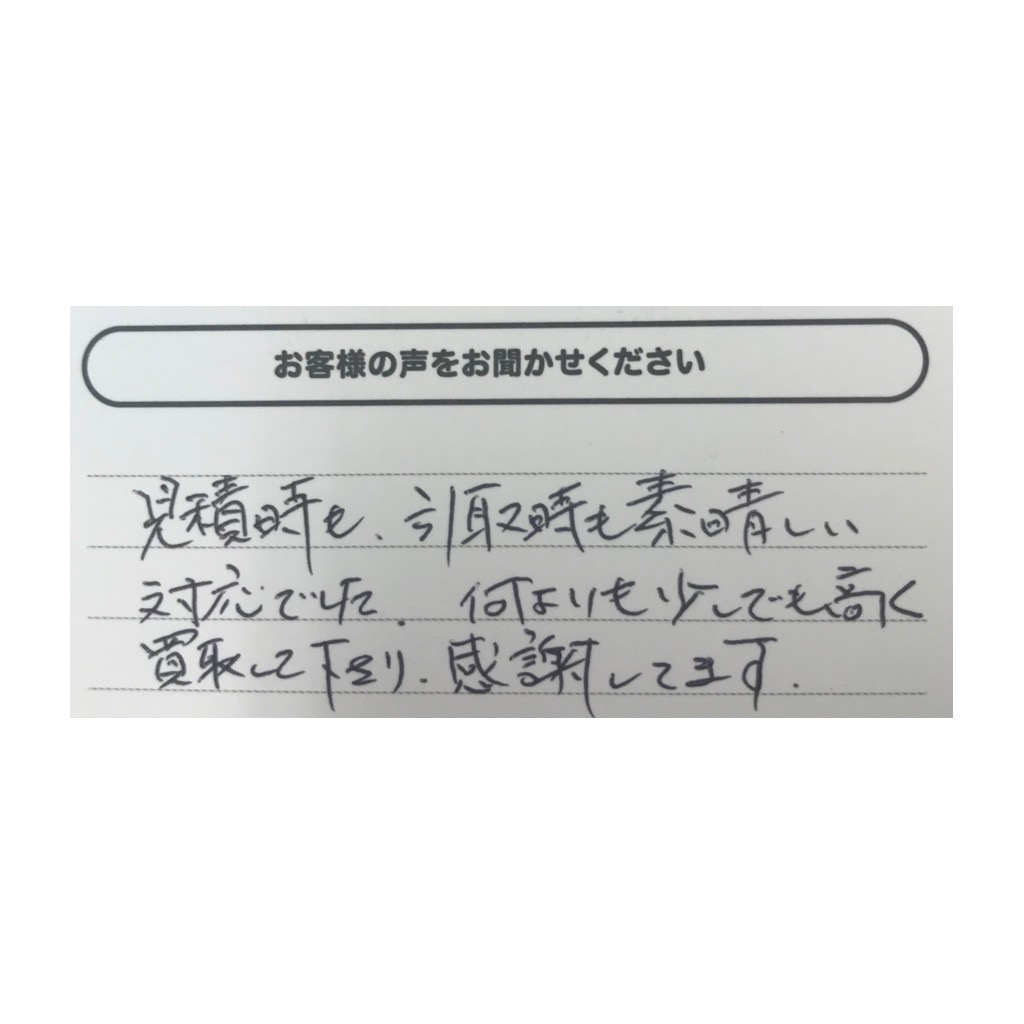 お客様の声をお聞かせください
見積時も、引取時も素晴しい
対応でした。何よりも少しでも高く
買取して下さり、感謝してます。